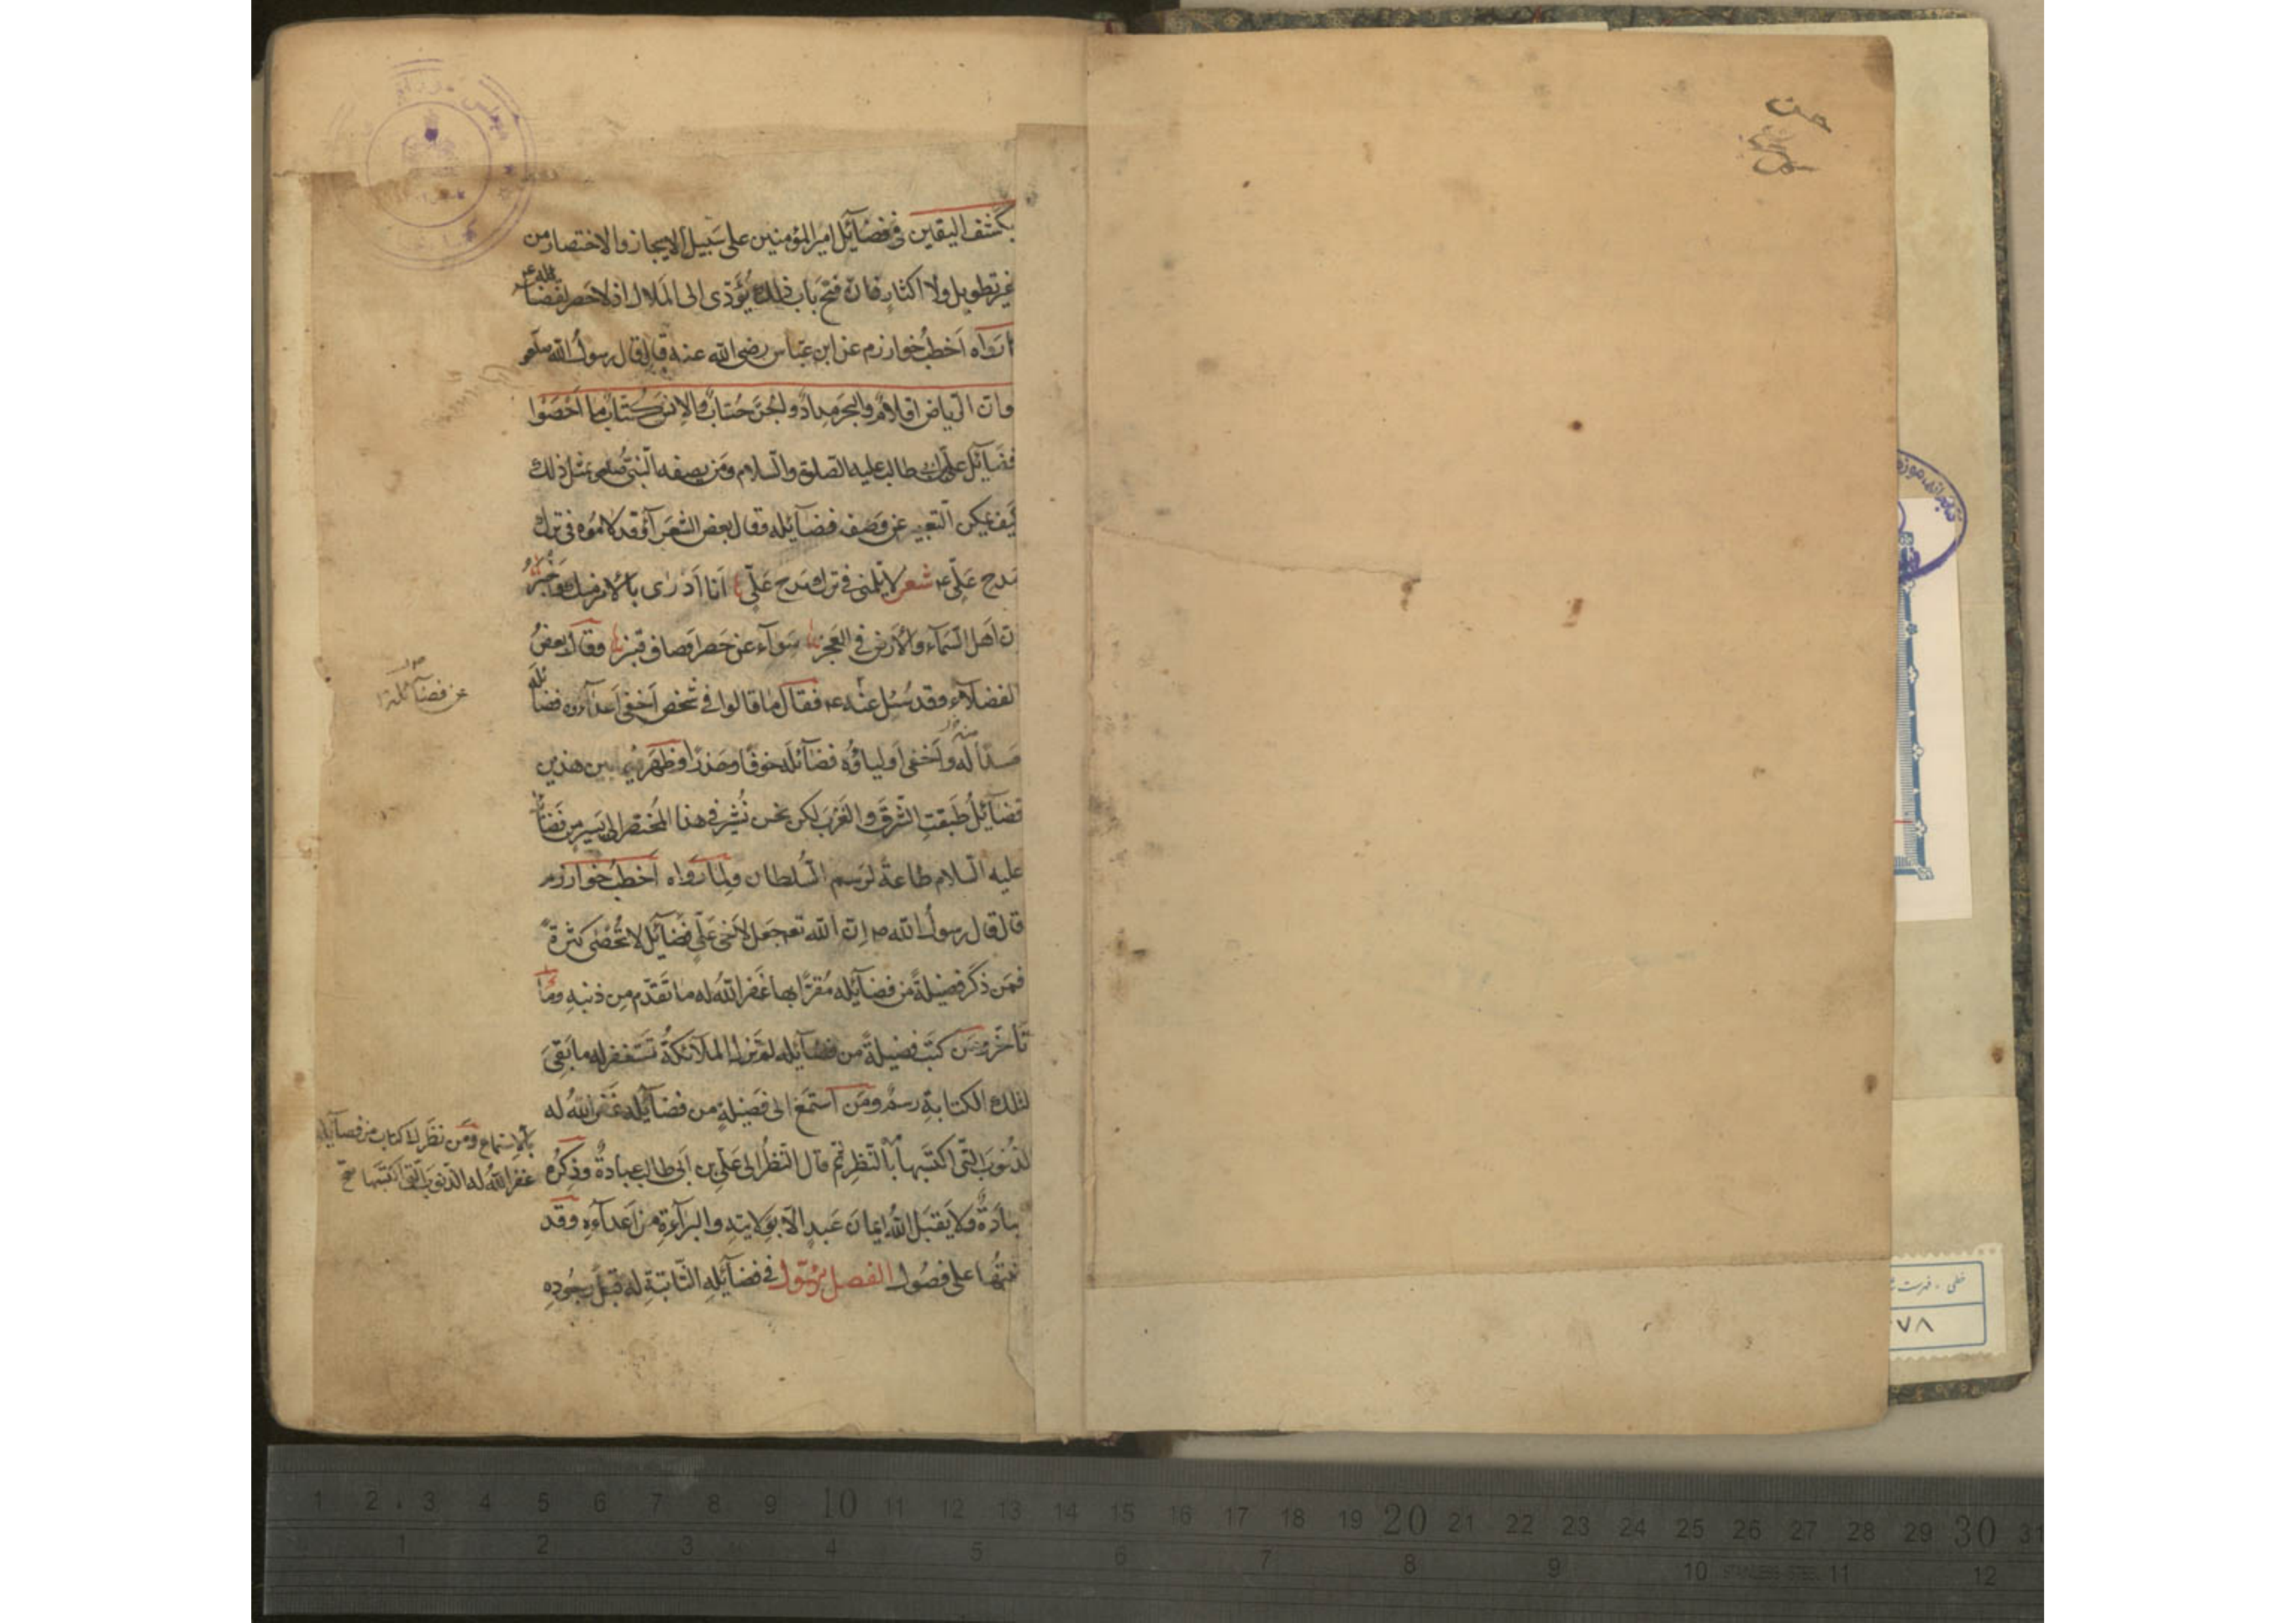 حسن
بكشف اليقين فى فضآئل امير المؤمنين على سَبيل الايجاز والاختصار من
غير تطويل ولا اكثارٍ فانّ فتح بَاب ذلك يُؤدّى الى المَلال اذ لا حَصر لفضائله عم
ما رَواه اَخطبُ خوارزم عن ابن عبّاس رضى الله عنه قال قال رسولُ الله صلعم
وانّ الرياض اقلامٌ والبحر مِدادٌ والجنّ حُسّابٌ والاِنس كُتّابٌ ما اَحْصَوْا
فضَآئل علىّ بن ابى طالب عليه الصلوة والسّلام ومَن يصفه النّبىّ صلعم بمثل ذلك
كيفَ يمكن التعبير عن وَصف فضآئله وقال بعض الشعَرآء وقد لاموُه فى ترك
مَدح عَلىّ عم شعر لا تلمنى فى ترك مَدح عَلىّ انا اَدْرٰى بالامر منك وَاَخبَرُ
انّ اَهل السّمآء والاَرض فى العَجز سَوآء عن حَصر اَوصاف قنبر وقال بعضُ
الفضلآء وقد سُئل عنه عم فقالَ ما قالوا فى شخص اَخفى اَعدآؤه فضائله
حسدًا له واَخفى اَولياؤه فضآئله خوفًا وحَذرًا وظهَر فيما بين هذين
فضآئلُ طَبقتِ الشّرقَ والغَربَ لكن نحن نُشير فى هذا المُختصر الى يَسيرٍ من فَضَائله
عليه السّلام طاعةً لرَسم السّلطان ولِما رَواه اَخطبُ خوارزم
قال قال رسولُ الله ص اِنّ الله تعم جَعل لاَخى عَلىٍّ فضآئل لا تُحْصٰى كثرةً
فمَن ذكَر فضيلةً من فضآئله مُقرًّا بها غفَر اللهُ له ما تقدّم مِن ذنبهِ ومَا
تأخّر ومَن كتَب فضيلةً من فضآئله لم تزل الملآئكةُ تَستغفر له ما بَقىَ
لتلك الكتابةِ رسمٌ ومَن استمَع الى فضيلةٍ من فضآئله غَفر اللهُ له
الذنوبَ التّى اكتسَبها بالنّظر ثم قال النّظرُ الى عَلىّ بن ابى طالب عبادةٌ وذكرُه
عبادَةٌ ولا يَقبَل اللهُ ايمانَ عَبدٍ الّا بوِلايتهِ والبرآءةِ من اَعدآءِه وقد
رتبتُها على فصُول الفصل الاوّل فى فضآئلِه الثّابتةِ له قبل وجُودِه
عن فضائله
بالاستماع ومَن نظر الى كتاب من فضآئله
غفر اللهُ له الذنوبَ الّتى اكتسَبها صح
كتابخانه، موزه
خطى - فهرست
٧٨
1 2 3 4 5 6 7 8 9 10 11 12 13 14 15 16 17 18 19 20 21 22 23 24 25 26 27 28 29 30 31
1 2 3 4 5 6 7 8 9 10 11 12